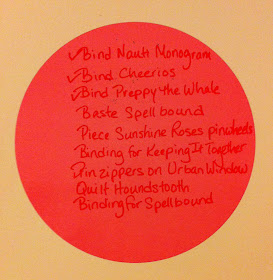 ✓Bind Nauti Monogram
✓Bind Cheerios
✓Bind Preppy the Whale
Baste Spellbound
Piece Sunshine Roses pinwheels
Binding for Keeping It Together
✓Pin zippers on Urban Window
Quilt Houndstooth
Binding for Spellbound